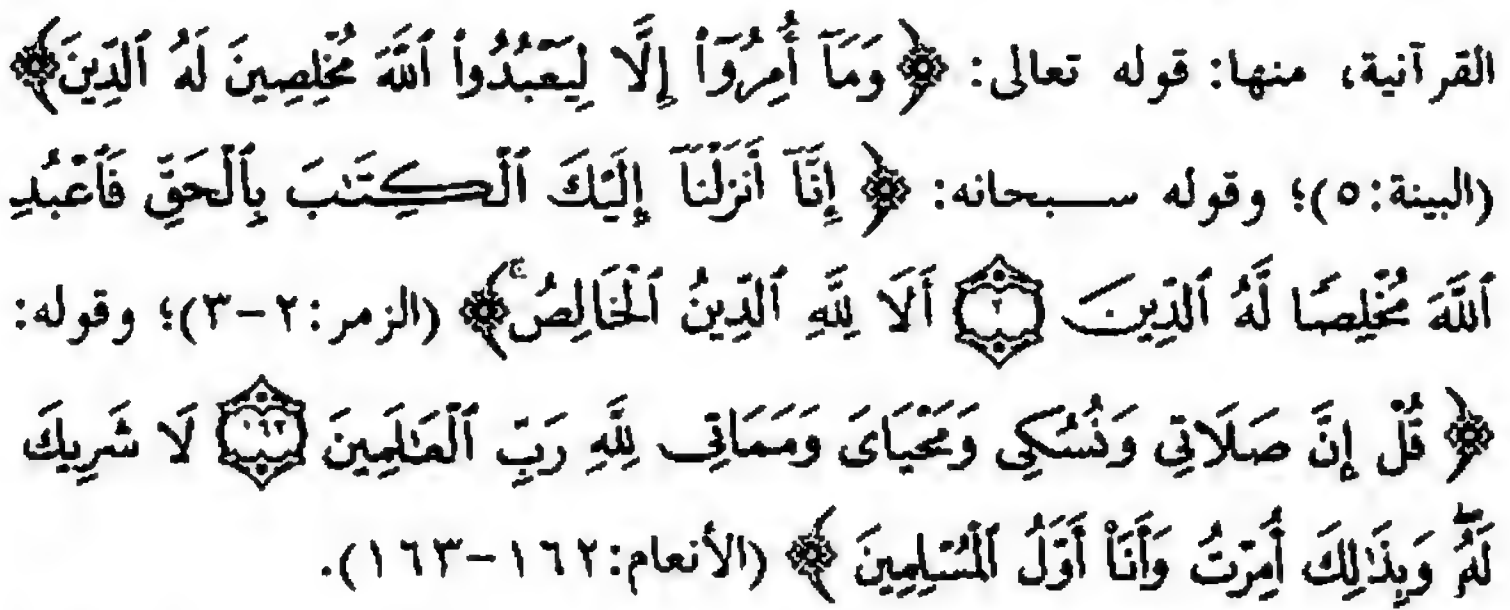 القرآنية، منها: قوله تعالى: ﴿وَمَآ أُمِرُوٓاْ إِلَّا لِيَعۡبُدُواْ ٱللَّهَ مُخۡلِصِينَ لَهُ ٱلدِّينَ﴾
(البينة:٥)؛ وقوله سبحانه: ﴿إِنَّآ أَنزَلۡنَآ إِلَيۡكَ ٱلۡكِتَٰبَ بِٱلۡحَقِّ فَٱعۡبُدِ
ٱللَّهَ مُخۡلِصٗا لَّهُ ٱلدِّينَ ٢ أَلَا لِلَّهِ ٱلدِّينُ ٱلۡخَالِصُۚ﴾ (الزمر:٢-٣)؛ وقوله:
﴿قُلۡ إِنَّ صَلَاتِي وَنُسُكِي وَمَحۡيَايَ وَمَمَاتِي لِلَّهِ رَبِّ ٱلۡعَٰلَمِينَ ١٦٢ لَا شَرِيكَ
لَهُۥۖ وَبِذَٰلِكَ أُمِرۡتُ وَأَنَا۠ أَوَّلُ ٱلۡمُسۡلِمِينَ﴾ (الأنعام:١٦٢-١٦٣).